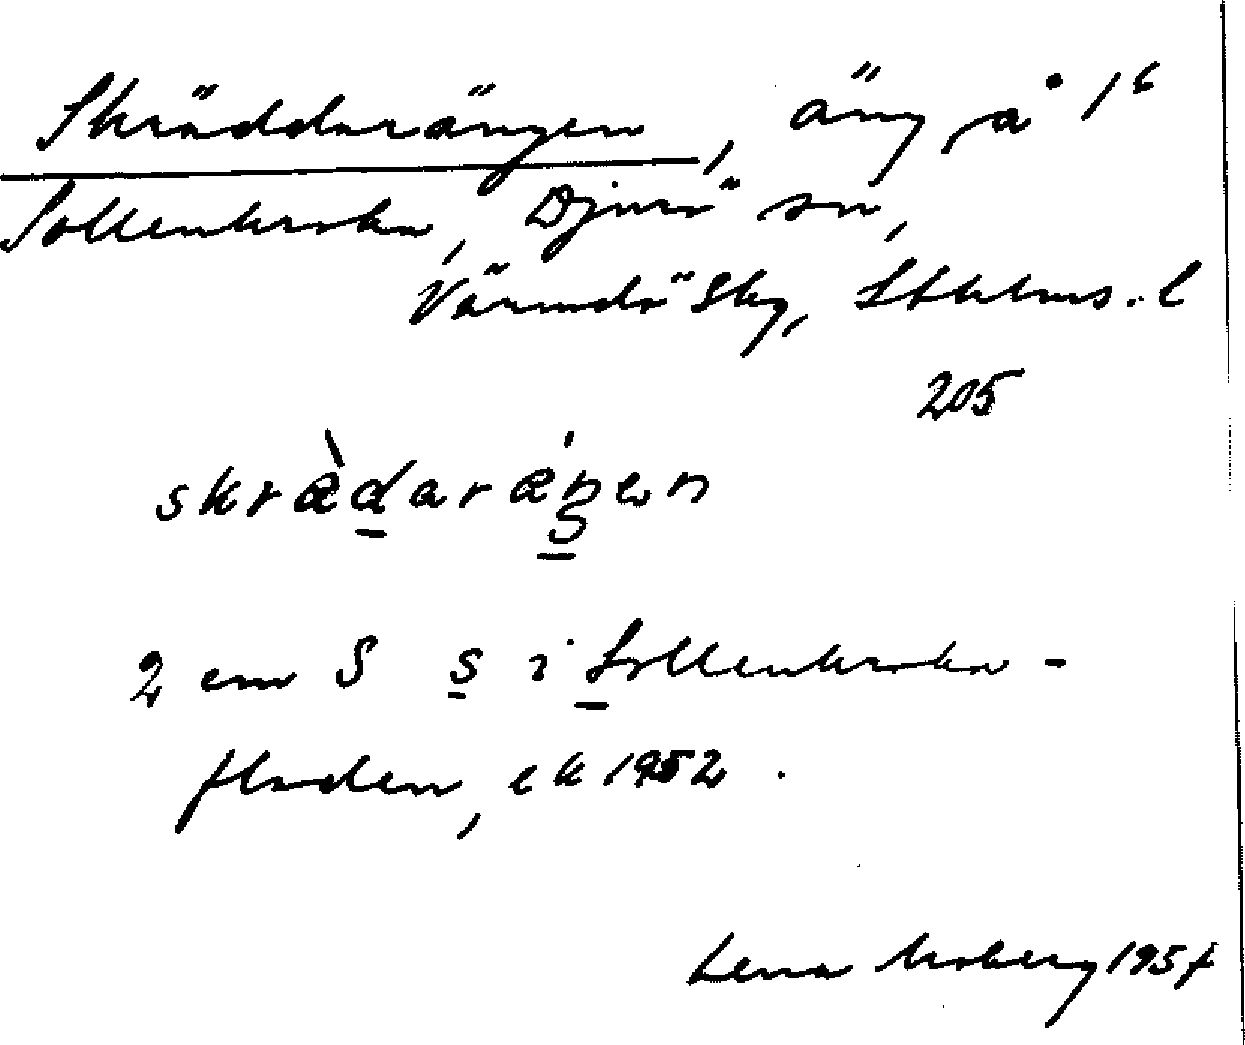 Skräddarängen, äng på 1⁶
Sollenkroka, Djurö sn,
Värmdö Skg, Sthlms. l
205
skræ̀d̲arǽŋ̲en
2 cm S s̲ i S̲ollenkroka-
fladen, ek 1952.
Lena Moberg 1957